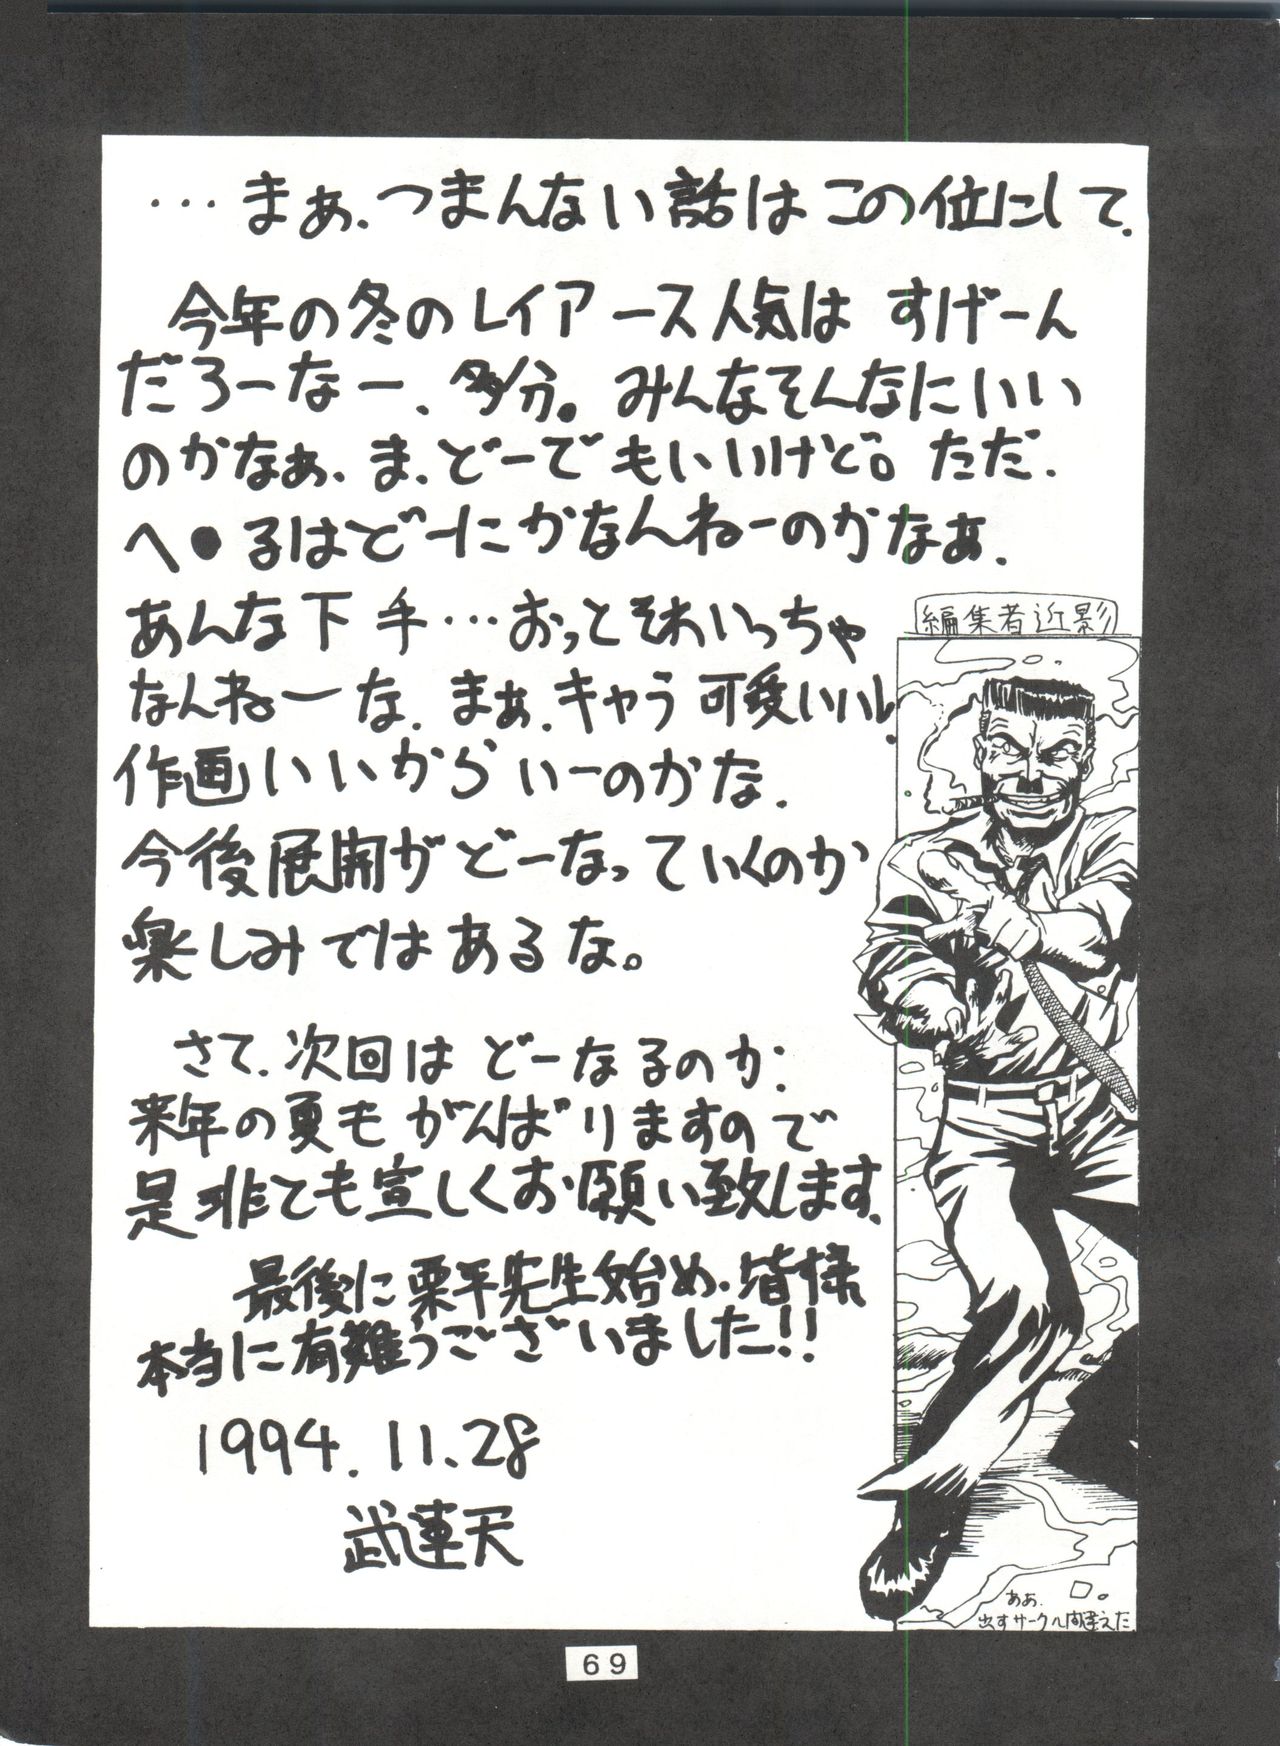 …まぁ、つまんない話はこの位にして、
今年の冬のレイアース人気は すげーん
だろーなー、多分。みんなそんなにいい
のかなぁ、ま、どーでもいいけど。ただ、
へ●るはどーにかなんねーのかなぁ、
あんな下手…おっとそれいっちゃ
なんねーな、まぁ、キャラ可愛いいし、
作画いいからいーのかな、
今後展開がどーなっていくのか
楽しみではあるな。
さて、次回はどーなるのか、
来年の夏もがんばりますので
是非とも宜しくお願い致します、
最後に栗平先生始め、皆様
本当に有難うございました!!
1994.11.28
武蓮天
編集者近影
ああ、
出すサークル間違えた
69